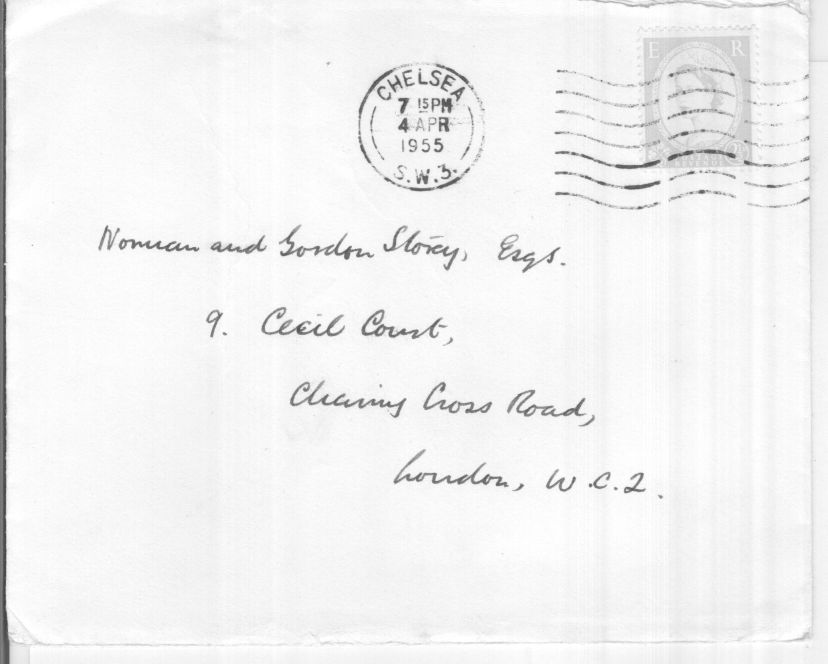 CHELSEA
7 15 PM
4 APR
1955
S.W.3.
E R
Norman and Gordon Storey, Esqs.
9. Cecil Court,
Charing Cross Road,
London, W.C.2.